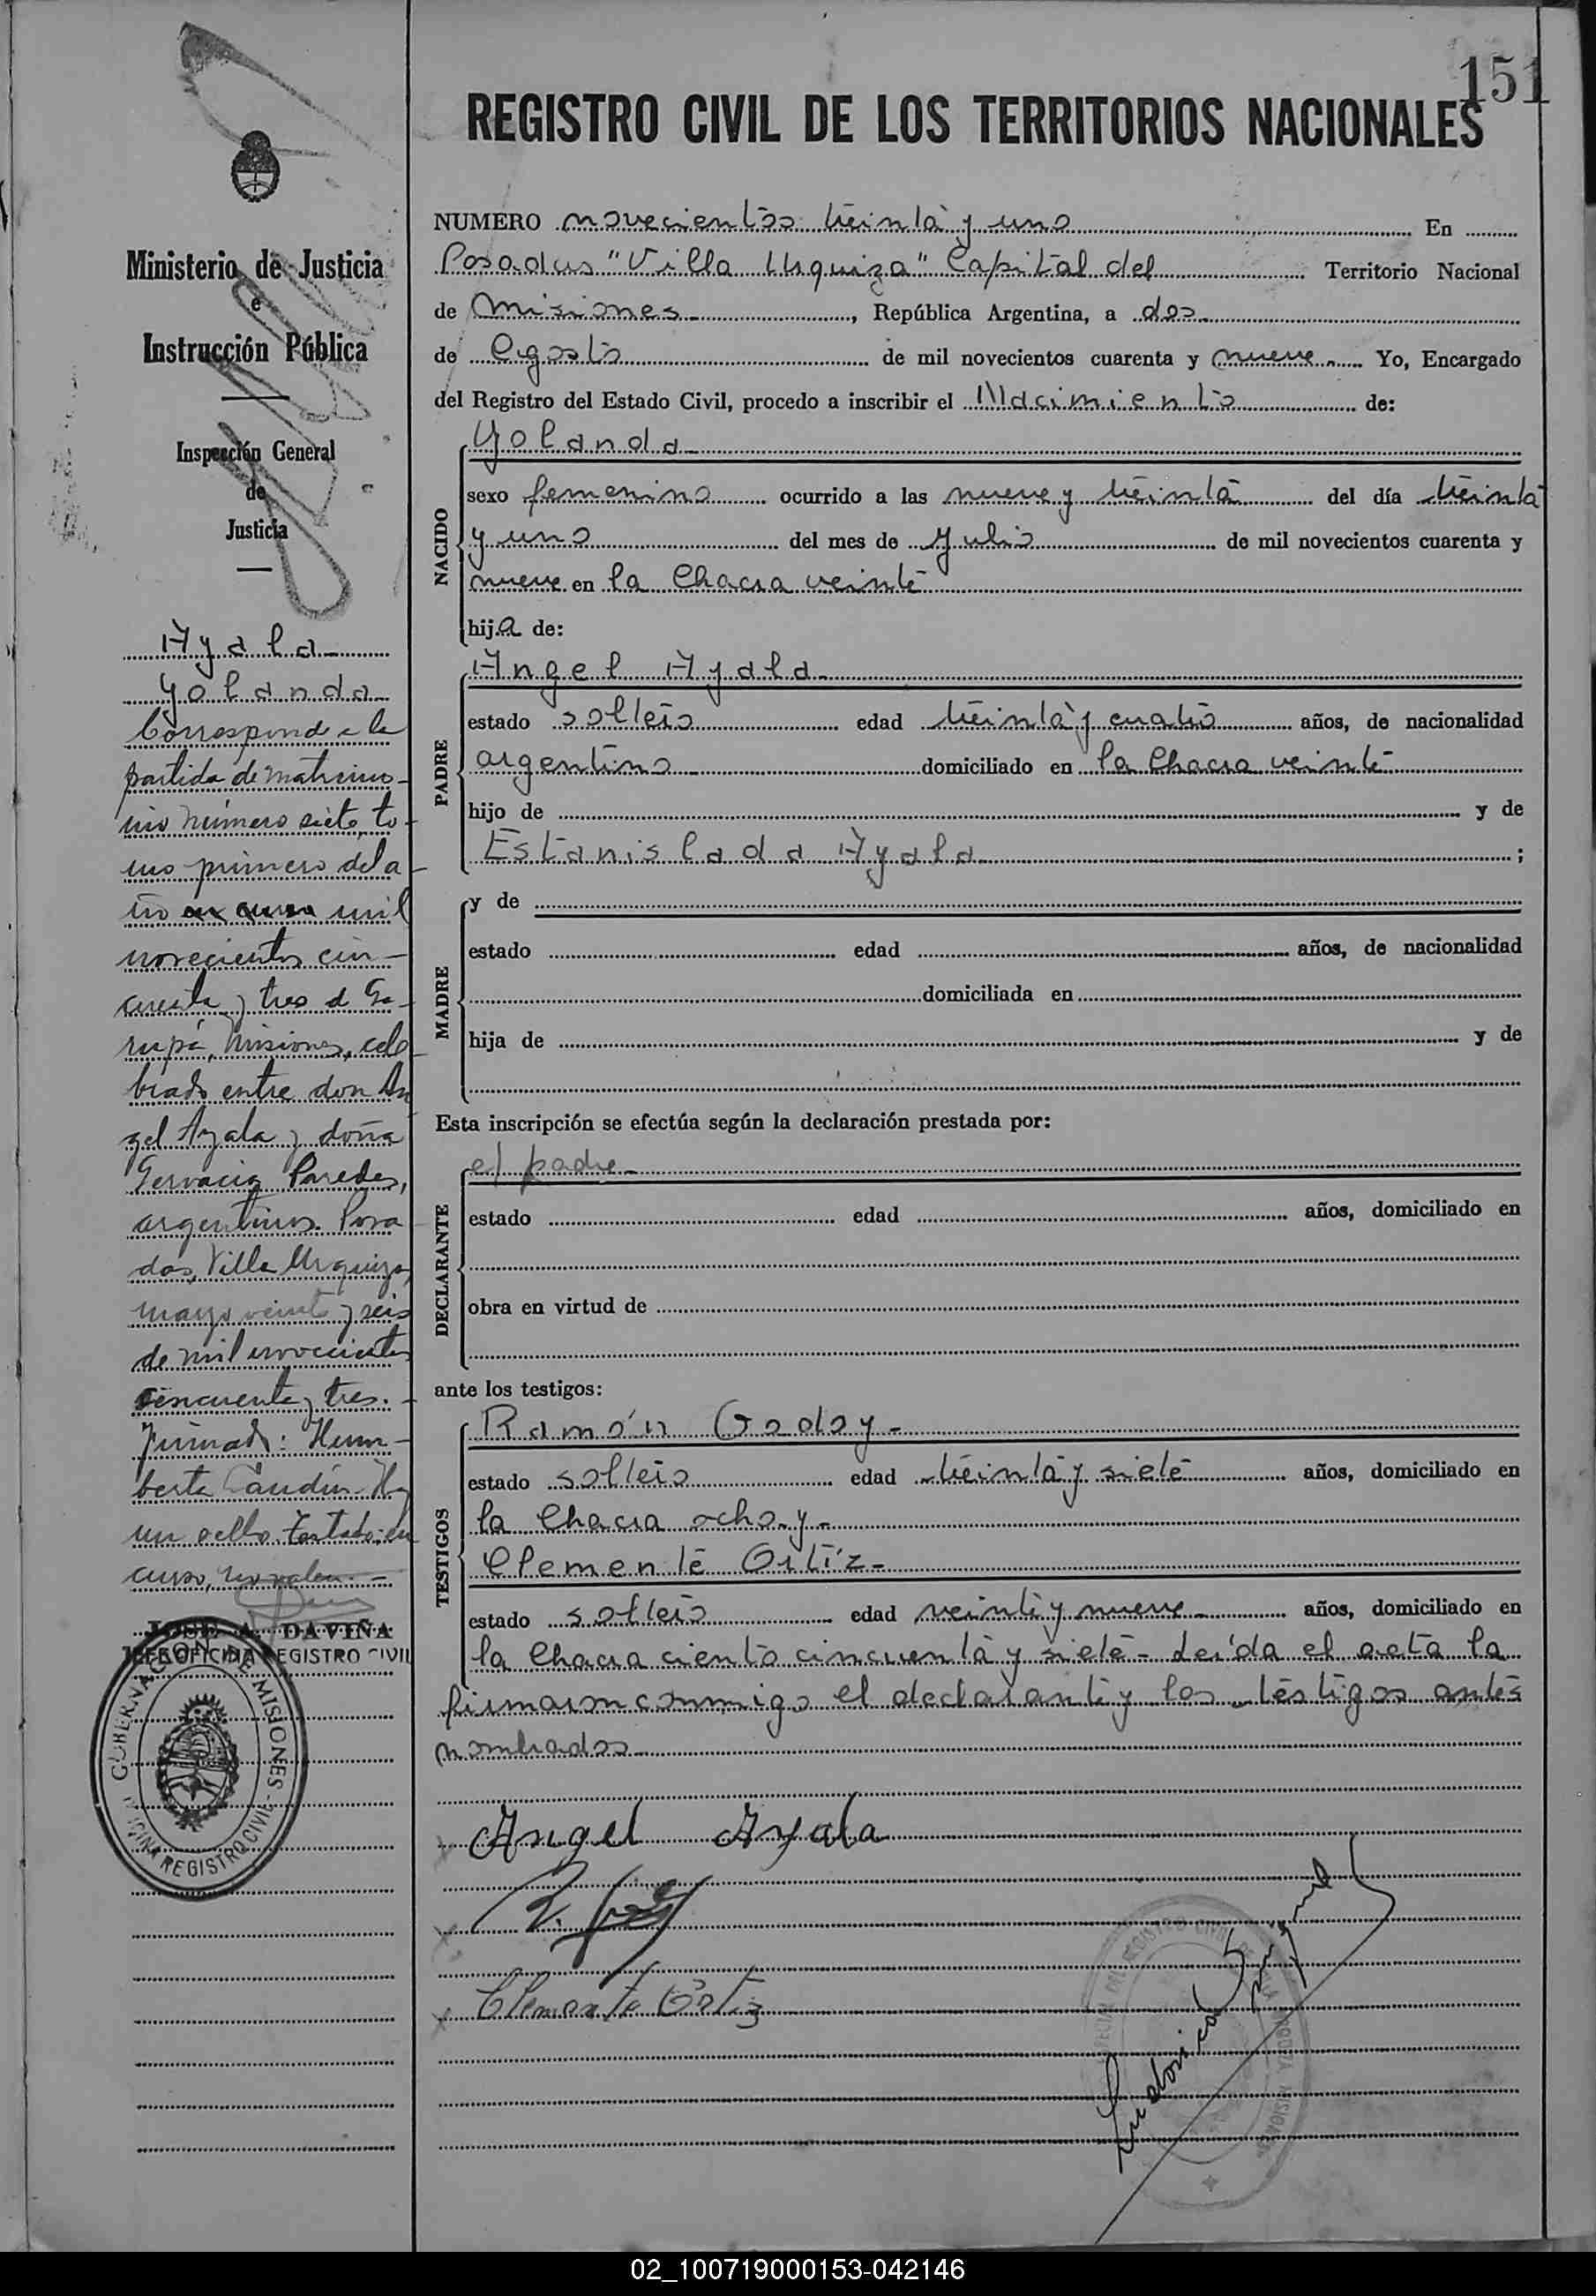 151
REGISTRO CIVIL DE LOS TERRITORIOS NACIONALES
Ministerio de Justicia
e
Instrucción Pública
Inspección General
de
Justicia
Ayala
Yolanda
Corresponde a la
partida de matrimo-
nio número siete, to-
mo primero del a-
ño en curso mil
novecientos cin-
cuenta y tres d Ga-
rupá, Misiones, cele-
brado entre don An
gel Ayala y doña
Gervacia Paredes,
argentinos. Posa
das, Villa Urquiza,
mayo veinte y seis
de mil novecientos
cincuenta y tres.-
Firmado: Hum-
berto Hay
un sello. Testado: en
curso, no valen.-
JOSE A. DAVIÑA
JEFE OFICINA REGISTRO CIVIL
GOBERNACION DE MISIONES - OFICINA REGISTRO CIVIL
NUMERO novecientos treinta y uno En
Posadas "Villa Urquiza" Capital del Territorio Nacional
de Misiones, República Argentina, a dos
de Agosto de mil novecientos cuarenta y nueve. Yo, Encargado
del Registro del Estado Civil, procedo a inscribir el Nacimiento de:
NACIDO
Yolanda
sexo femenino ocurrido a las nueve y treinta del día treinta
y uno del mes de Julio de mil novecientos cuarenta y
nueve en la Chacra veinte
hija de:
PADRE
Angel Ayala
estado soltero edad treinta y cuatro años, de nacionalidad
argentino domiciliado en la Chacra veinte
hijo de y de
Estanislada Ayala ;
MADRE
y de
estado edad años, de nacionalidad
domiciliada en
hija de y de
Esta inscripción se efectúa según la declaración prestada por:
DECLARANTE
el padre
estado edad años, domiciliado en
obra en virtud de
ante los testigos:
TESTIGOS
Ramón Godoy-
estado soltero edad treinta y siete años, domiciliado en
la Chacra ocho y-
Clemente Ortíz-
estado soltero edad veinte y nueve años, domiciliado en
la Chacra ciento cincuenta y siete- Leída el acta la
firmaron conmigo el declarante y los testigos antes
nombrados
Angel Ayala
Clemente Ortiz
02_100719000153-042146